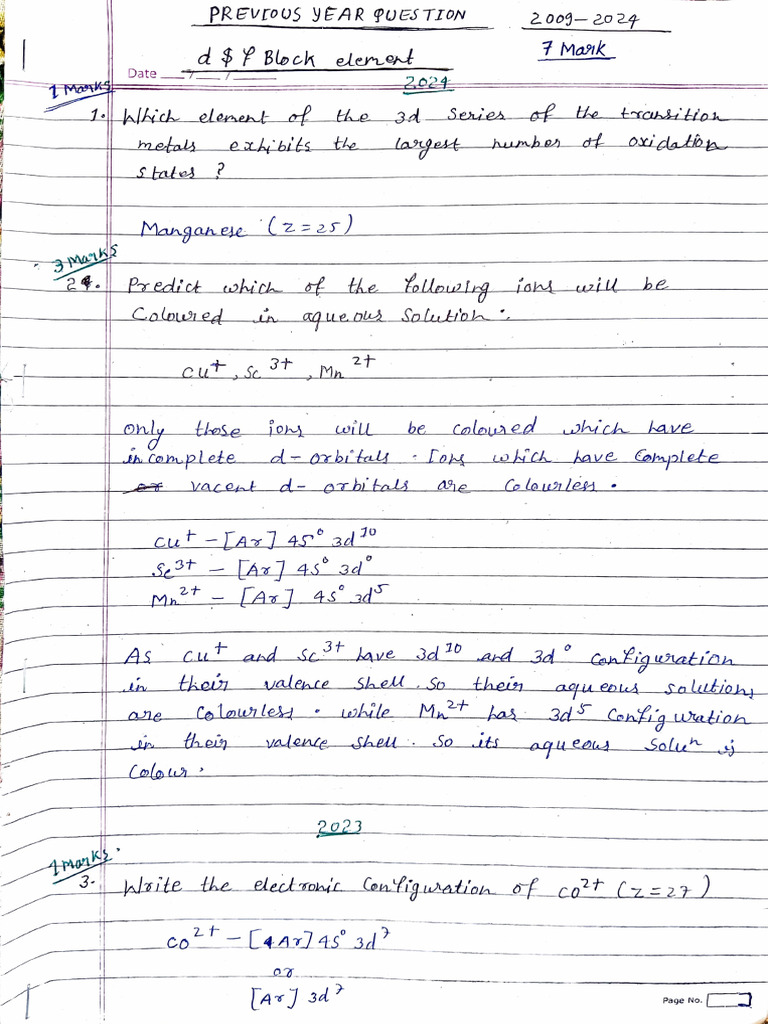 PREVIOUS YEAR QUESTION 2009-2024
d $ f Block element 7 Mark
Date
2024
1 Marks
1. Which element of the 3d series of the transition
metals exhibits the largest number of oxidation
states ?
Manganese (Z=25)
3 Marks
2. Predict which of the following ions will be
Coloured in aqueous solution:
Cu⁺, Sc³⁺, Mn²⁺
only those ions will be coloured which have
incomplete d-orbitals. Ions which have Complete
or vacent d-orbitals are Colourless.
Cu⁺ - [Ar] 4S⁰ 3d¹⁰
Sc³⁺ - [Ar] 4S⁰ 3d⁰
Mn²⁺ - [Ar] 4S⁰ 3d⁵
As Cu⁺ and Sc³⁺ have 3d¹⁰ and 3d⁰ Configuration
in their valence shell. So their aqueous solutions
are Colourless. while Mn²⁺ has 3d⁵ Configuration
in their valence shell. So its aqueous Soluⁿ is
Colour.
2023
1 Marks.
3. Write the electronic Configuration of CO²⁺ (Z=27)
CO²⁺ - [Ar] 4S⁰ 3d⁷
or
[Ar] 3d⁷
Page No.